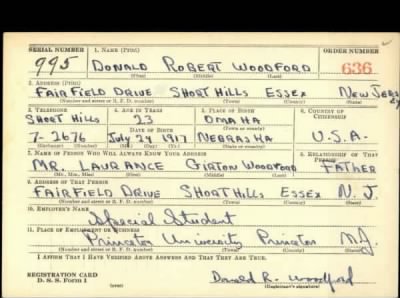 SERIAL NUMBER 1. NAME (Print) ORDER NUMBER
995 DONALD ROBERT WOODFORD 636
(First) (Middle) (Last)
2. ADDRESS (Print)
FAIRFIELD DRIVE SHORT HILLS ESSEX NEW JERSEY
(Number and street or R. F. D. number) (Town) (County) (State)
3. TELEPHONE 4. AGE IN YEARS 5. PLACE OF BIRTH 6. COUNTRY OF CITIZENSHIP
SHORT HILLS 23 OMAHA
(Exchange) DATE OF BIRTH (Town or county)
7-2676 July 29 1917 NEBRASHA U.S.A.
(Number) (Mo.) (Day) (Yr.) (State or country)
7. NAME OF PERSON WHO WILL ALWAYS KNOW YOUR ADDRESS 8. RELATIONSHIP OF THAT PERSON
MR. LAURANCE GIRTON WOODFORD FATHER
(Mr., Mrs., Miss) (First) (Middle) (Last)
9. ADDRESS OF THAT PERSON
FAIRFIELD DRIVE SHORT HILLS ESSEX N. J.
(Number and street or R. F. D. number) (Town) (County) (State)
10. EMPLOYER'S NAME
Special Student
11. PLACE OF EMPLOYMENT OR BUSINESS
Princeton University Princeton N.J.
(Number and street or R. F. D. number) (Town) (County) (State)
I AFFIRM THAT I HAVE VERIFIED ABOVE ANSWERS AND THAT THEY ARE TRUE.
REGISTRATION CARD
D. S. S. Form 1 Donald R. Woodford
(Registrant's signature)